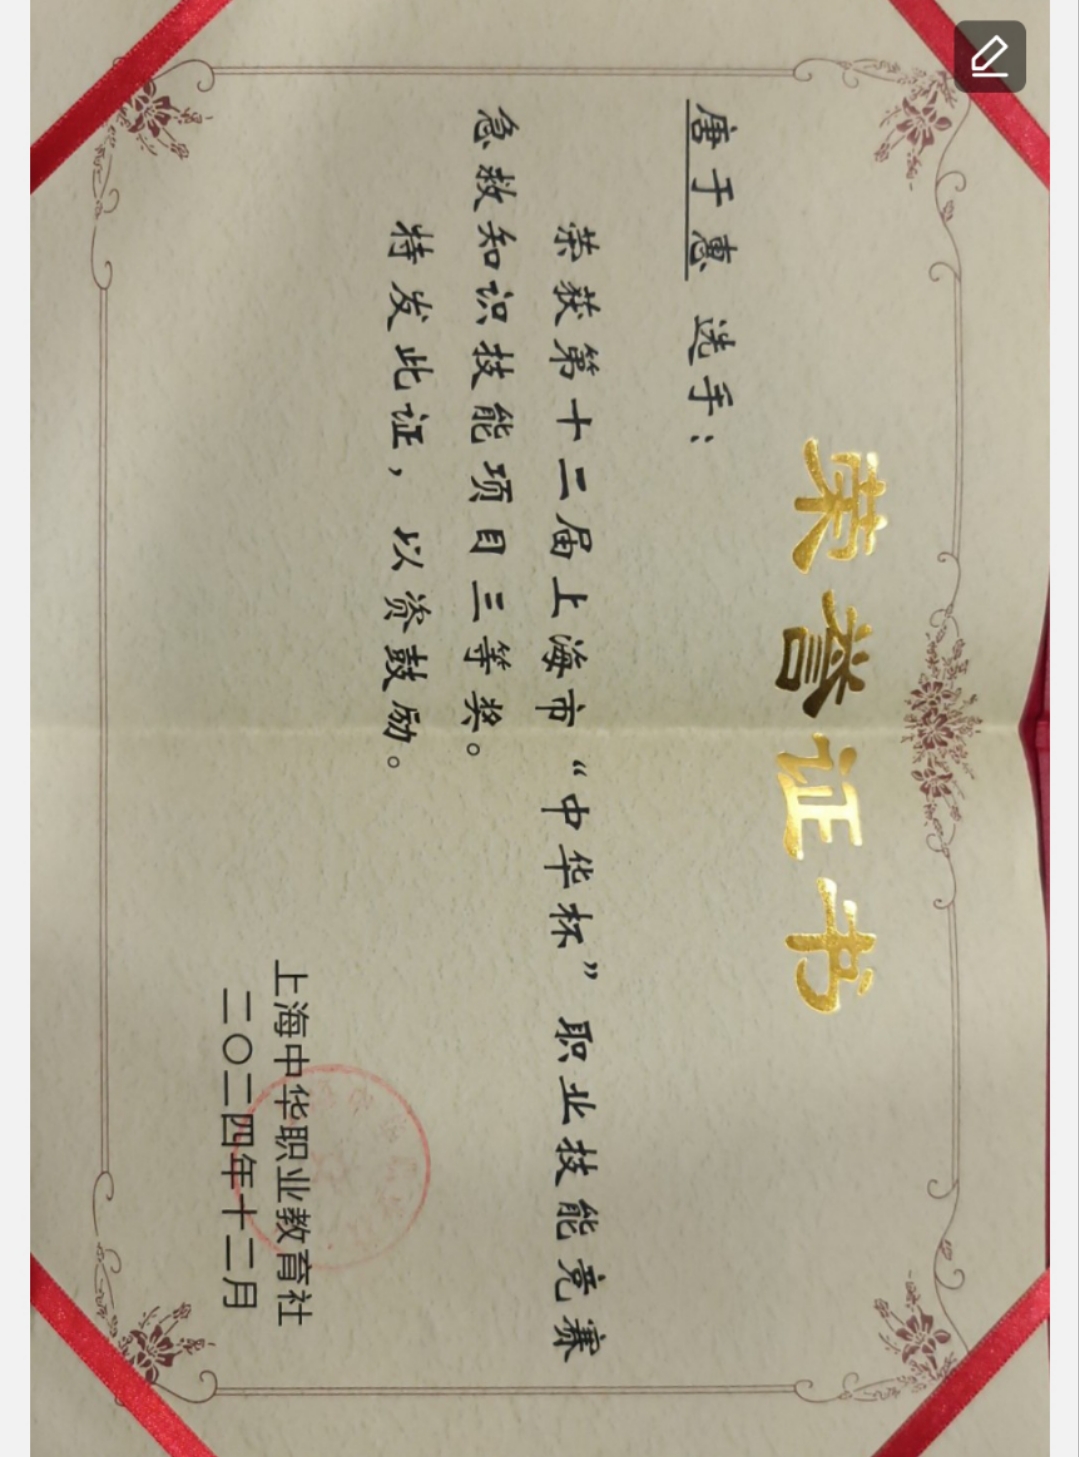 荣誉证书
唐于惠 选手：
荣获第十二届上海市“中华杯”职业技能竞赛
急救知识技能项目三等奖。
特发此证，以资鼓励。
上海中华职业教育社
二〇二四年十二月